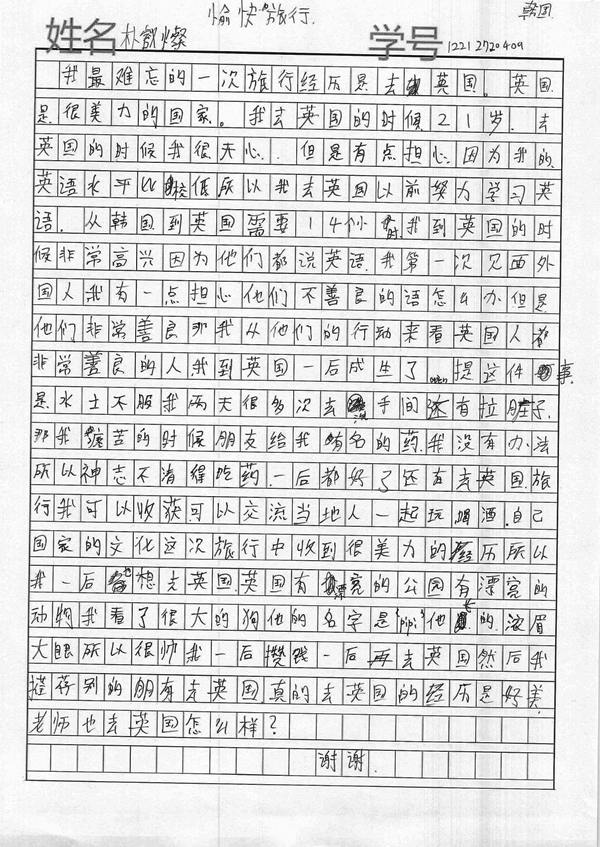 愉快的旅行. 韩国
姓名 朴 灿 学号 1221 2720409
我最难忘的一次旅行经历是去英国。英国
是很美力的国家。我去英国的时候21岁.去
英国的时候我很天心.但是有点担心.因为我的
英语水平比较低所以我去英国以前努力学习英
语.从韩国到英国需要14小时.我到英国的时
候非常高兴因为他们都说英语.我第一次见面外
国人我有一点担心他们不善良的话怎么办但是
他们非常善良那我从他们的行动来看英国人都
非常善良的人我到英国一后成生了 提这件事
是水土不服我两天很多次去洗手间还有拉肚子.
那我 苦的时候朋友给我有名的药.我没有办法
所以神志不清得吃药.一后都好了还有去英国旅
行我可以收获可以交流当地人一起玩喝酒.自己
国家的文化这次旅行中收到很美力的经历所以
我一后也想去英国.英国有漂亮的公园有漂亮的
动物我看了很大的狗他的名字是"帅"他长的.浓眉
大眼所以很帅我一后攒钱一后再去英国然后我
推荐别的朋有去英国真的去英国的经历是好美.
老师也去英国怎么样?
谢谢.